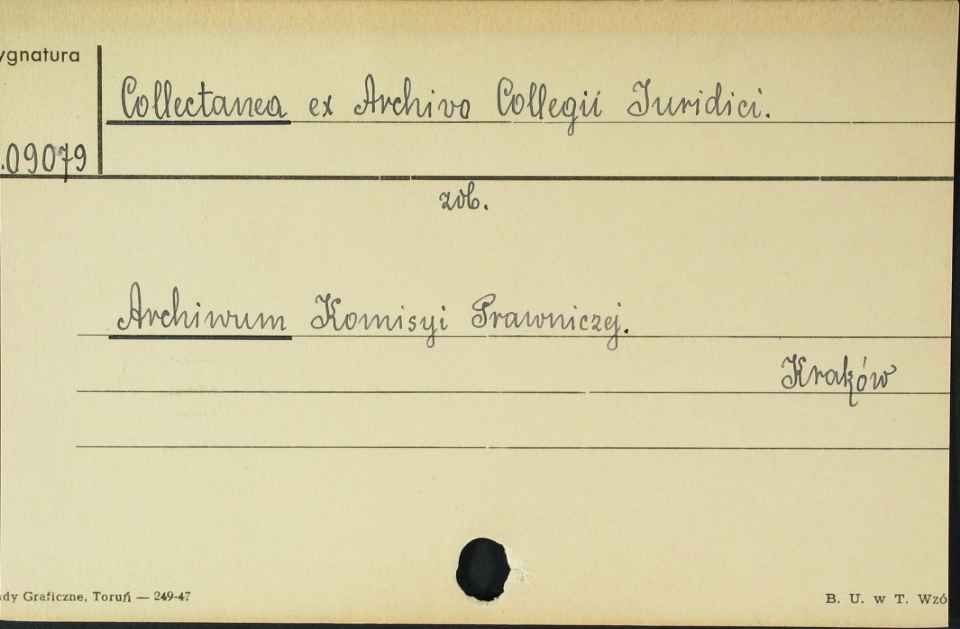 ygnatura
Collectanea ex Archivo Collegii Iuridici.
.09079
zob.
Archiwum Komisyi Prawniczej.
Kraków
dy Graficzne, Toruń — 249-47
B. U. w T. Wzó